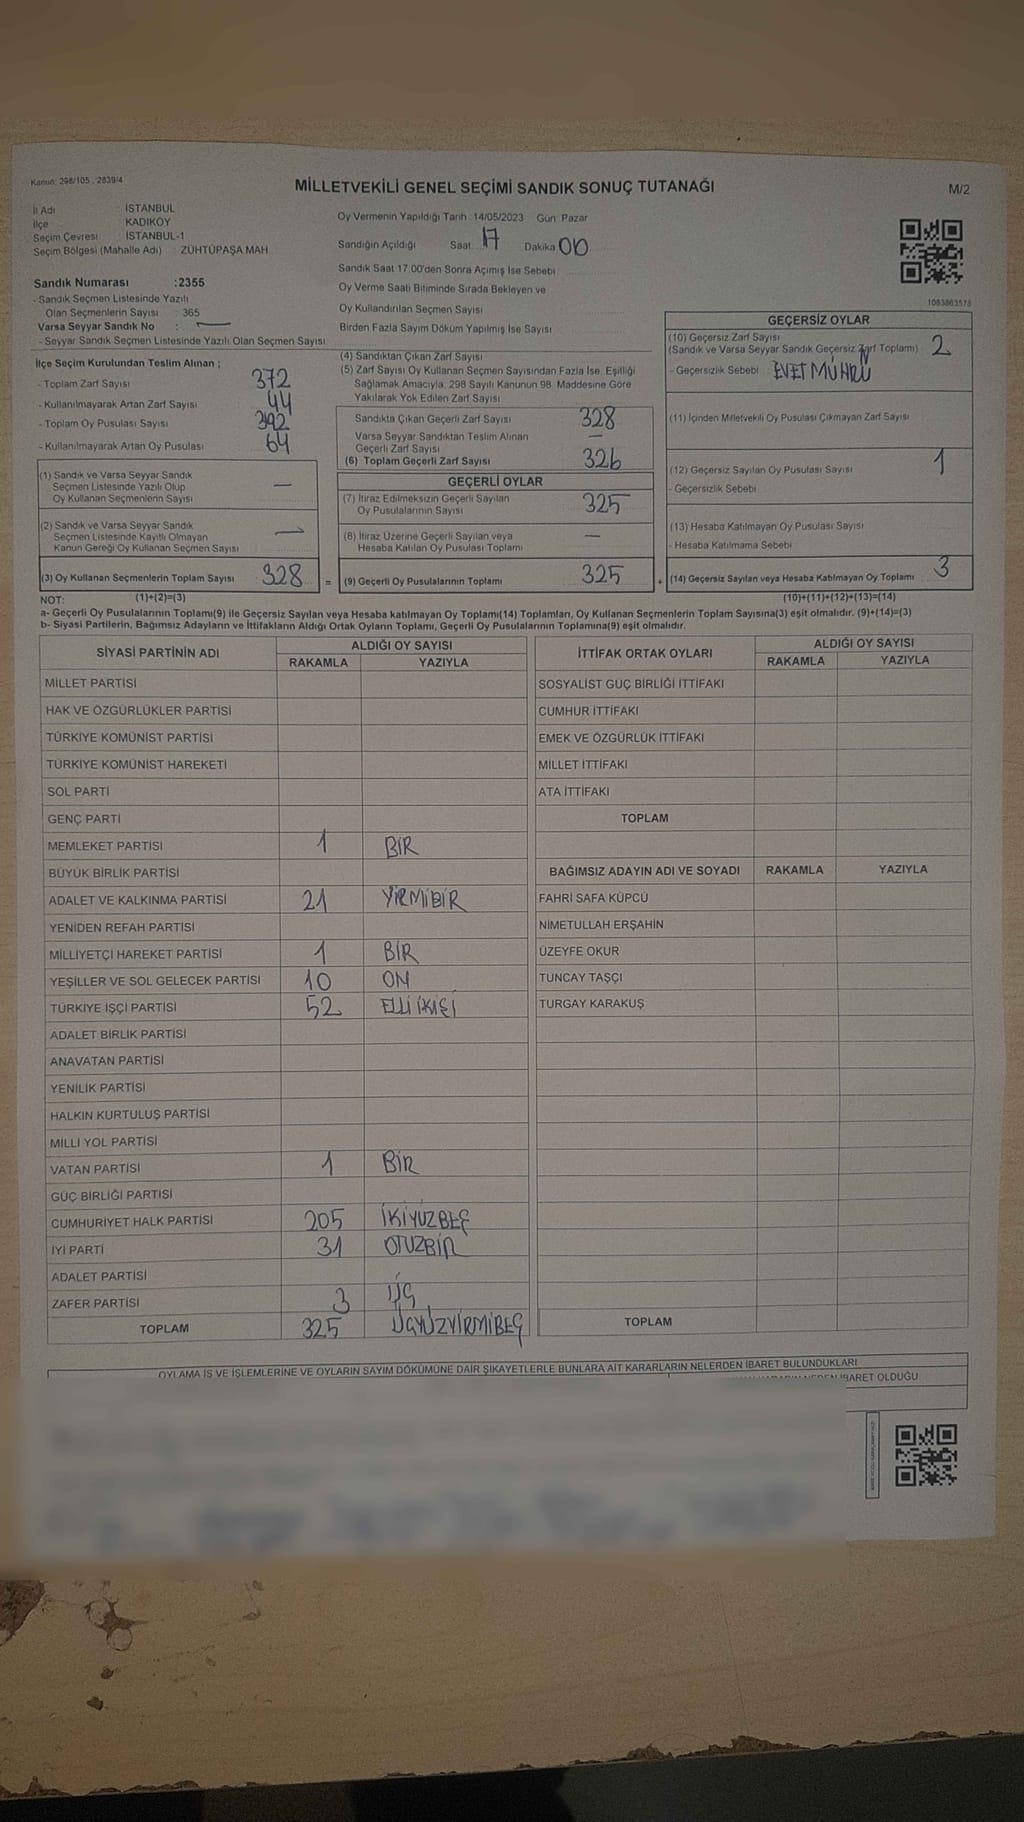 Kanun: 298/105 , 2839/4
MİLLETVEKİLİ GENEL SEÇİMİ SANDIK SONUÇ TUTANAĞI
M/2
İl Adı : İSTANBUL
İlçe : KADIKÖY
Seçim Çevresi : İSTANBUL-1
Seçim Bölgesi (Mahalle Adı) : ZÜHTÜPAŞA MAH
Sandık Numarası :2355
- Sandık Seçmen Listesinde Yazılı
Olan Seçmenlerin Sayısı : 365
Varsa Seyyar Sandık No : —
- Seyyar Sandık Seçmen Listesinde Yazılı Olan Seçmen Sayısı
Oy Vermenin Yapıldığı Tarih :14/05/2023 Gün: Pazar
Sandığın Açıldığı Saat: 17 Dakika 00
Sandık Saat 17:00'den Sonra Açımış İse Sebebi
Oy Verme Saati Bitiminde Sırada Bekleyen ve
Oy Kullandırılan Seçmen Sayısı
Birden Fazla Sayım Döküm Yapılmış İse Sayısı
1083863578
İlçe Seçim Kurulundan Teslim Alınan ;
- Toplam Zarf Sayısı 372
- Kullanılmayarak Artan Zarf Sayısı 44
- Toplam Oy Pusulası Sayısı 392
- Kullanılmayarak Artan Oy Pusulası 64
(1) Sandık ve Varsa Seyyar Sandık
Seçmen Listesinde Yazılı Olup
Oy Kullanan Seçmenlerin Sayısı —
(2) Sandık ve Varsa Seyyar Sandık
Seçmen Listesinde Kayıtlı Olmayan
Kanun Gereği Oy Kullanan Seçmen Sayısı —
(3) Oy Kullanan Seçmenlerin Toplam Sayısı 328
(4) Sandıktan Çıkan Zarf Sayısı
(5) Zarf Sayısı Oy Kullanan Seçmen Sayısından Fazla İse, Eşitliği
Sağlamak Amacıyla, 298 Sayılı Kanunun 98. Maddesine Göre
Yakılarak Yok Edilen Zarf Sayısı
Sandıkta Çıkan Geçerli Zarf Sayısı 328
Varsa Seyyar Sandıktan Teslim Alınan
Geçerli Zarf Sayısı —
(6) Toplam Geçerli Zarf Sayısı 326
GEÇERLİ OYLAR
(7) İtiraz Edilmeksizin Geçerli Sayılan
Oy Pusulalarının Sayısı 325
(8) İtiraz Üzerine Geçerli Sayılan veya
Hesaba Katılan Oy Pusulası Toplamı —
= (9) Geçerli Oy Pusulalarının Toplamı 325
GEÇERSİZ OYLAR
(10) Geçersiz Zarf Sayısı
(Sandık ve Varsa Seyyar Sandık Geçersiz Zarf Toplamı) 2
- Geçersizlik Sebebi EVET MÜHRÜ
(11) İçinden Milletvekili Oy Pusulası Çıkmayan Zarf Sayısı
(12) Geçersiz Sayılan Oy Pusulası Sayısı 1
- Geçersizlik Sebebi
(13) Hesaba Katılmayan Oy Pusulası Sayısı
- Hesaba Katılmama Sebebi
+ (14) Geçersiz Sayılan veya Hesaba Katılmayan Oy Toplamı 3
NOT: (1)+(2)=(3)
(10)+(11)+(12)+(13)=(14)
a- Geçerli Oy Pusulalarının Toplamı(9) ile Geçersiz Sayılan veya Hesaba katılmayan Oy Toplamı(14) Toplamları, Oy Kullanan Seçmenlerin Toplam Sayısına(3) eşit olmalıdır. (9)+(14)=(3)
b- Siyasi Partilerin, Bağımsız Adayların ve İttifakların Aldığı Ortak Oyların Toplamı, Geçerli Oy Pusulalarının Toplamına(9) eşit olmalıdır.
SİYASİ PARTİNİN ADI
ALDIĞI OY SAYISI
RAKAMLA YAZIYLA
MİLLET PARTİSİ
HAK VE ÖZGÜRLÜKLER PARTİSİ
TÜRKİYE KOMÜNİST PARTİSİ
TÜRKİYE KOMÜNİST HAREKETİ
SOL PARTİ
GENÇ PARTİ
MEMLEKET PARTİSİ 1 BİR
BÜYÜK BİRLİK PARTİSİ
ADALET VE KALKINMA PARTİSİ 21 YİRMİBİR
YENİDEN REFAH PARTİSİ
MİLLİYETÇİ HAREKET PARTİSİ 1 BİR
YEŞİLLER VE SOL GELECEK PARTİSİ 10 ON
TÜRKİYE İŞÇİ PARTİSİ 52
ADALET BİRLİK PARTİSİ
ANAVATAN PARTİSİ
YENİLİK PARTİSİ
HALKIN KURTULUŞ PARTİSİ
MİLLİ YOL PARTİSİ
VATAN PARTİSİ 1 BİR
GÜÇ BİRLİĞİ PARTİSİ
CUMHURİYET HALK PARTİSİ 205 İKİYÜZBEŞ
İYİ PARTİ 31 OTUZBİR
ADALET PARTİSİ
ZAFER PARTİSİ 3 ÜÇ
TOPLAM 325 ÜÇYÜZYİRMİBEŞ
İTTİFAK ORTAK OYLARI
ALDIĞI OY SAYISI
RAKAMLA YAZIYLA
SOSYALİST GÜÇ BİRLİĞİ İTTİFAKI
CUMHUR İTTİFAKI
EMEK VE ÖZGÜRLÜK İTTİFAKI
MİLLET İTTİFAKI
ATA İTTİFAKI
TOPLAM
BAĞIMSIZ ADAYIN ADI VE SOYADI RAKAMLA YAZIYLA
FAHRİ SAFA KÜPCÜ
NİMETULLAH ERŞAHİN
ÜZEYFE OKUR
TUNCAY TAŞÇI
TURGAY KARAKUŞ
TOPLAM
OYLAMA İŞ VE İŞLEMLERİNE VE OYLARIN SAYIM DÖKÜMÜNE DAİR ŞİKAYETLERLE BUNLARA AİT KARARLARIN NELERDEN İBARET BULUNDUKLARI
İBARET OLDUĞU